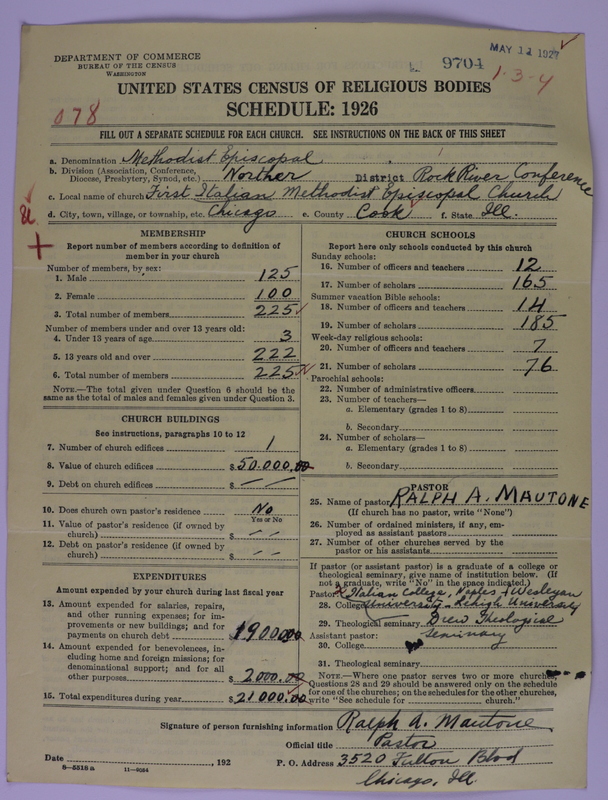 DEPARTMENT OF COMMERCE
BUREAU OF THE CENSUS
WASHINGTON
9704
MAY 11 1927
1-3-4
UNITED STATES CENSUS OF RELIGIOUS BODIES
SCHEDULE: 1926
078
FILL OUT A SEPARATE SCHEDULE FOR EACH CHURCH. SEE INSTRUCTIONS ON THE BACK OF THIS SHEET
a. Denomination Methodist Episcopal
b. Division (Association, Conference, Diocese, Presbytery, Synod, etc.) Norther District Rock River Conference
c. Local name of church First Italian Methodist Episcopal Church
d. City, town, village, or township, etc. Chicago e. County Cook f. State Ill.
MEMBERSHIP
Report number of members according to definition of
member in your church
Number of members, by sex:
1. Male 125
2. Female 100
3. Total number of members 225
Number of members under and over 13 years old:
4. Under 13 years of age 3
5. 13 years old and over 222
6. Total number of members 225
NOTE.—The total given under Question 6 should be
the same as the total of males and females given under Question 3.
CHURCH BUILDINGS
See instructions, paragraphs 10 to 12
7. Number of church edifices 1
8. Value of church edifices $50.000.00
9. Debt on church edifices $ — —
10. Does church own pastor's residence? No
Yes or No
11. Value of pastor's residence (if owned by
church) $ - -
12. Debt on pastor's residence (if owned by
church) $ - -
EXPENDITURES
Amount expended by church during last fiscal year
13. Amount expended for salaries, repairs,
and other running expenses; for im-
provements or new buildings; and for
payments on church debt $19000.00
14. Amount expended for benevolences, in-
cluding home and foreign missions; for
denominational support; and for all
other purposes $2000.00
15. Total expenditures during year $21000.00
CHURCH SCHOOLS
Report here only schools conducted by this church
Sunday schools:
16. Number of officers and teachers 12
17. Number of scholars 165
Summer vacation Bible schools:
18. Number of officers and teachers 14
19. Number of scholars 185
Week-day religious schools:
20. Number of officers and teachers 7
21. Number of scholars 76
Parochial schools:
22. Number of administrative officers
23. Number of teachers—
a. Elementary (grades 1 to 8)
b. Secondary
24. Number of scholars—
a. Elementary (grades 1 to 8)
b. Secondary
PASTOR
25. Name of pastor RALPH A. MAUTONE
(If church has no pastor, write "None")
26. Number of ordained ministers, if any, em-
ployed as assistant pastors
27. Number of other churches served by the
pastor or his assistants
If pastor (or assistant pastor) is a graduate of a college or
theological seminary, give name of institution below. (If
not a graduate, write "No" in the space indicated.)
Pastor: Italian College, Naples + Wesleyan
28. College University - Lehigh University
29. Theological seminary Drew Theological
Assistant pastor: Seminary
30. College
31. Theological seminary
NOTE.—Where one pastor serves two or more churches,
Questions 28 and 29 should be answered only on the schedule
for one of the churches; on the schedules for the other churches,
write "See schedule for church."
Signature of person furnishing information Ralph A. Mautone
Official title Pastor
Date , 192 P. O. Address 3520 Fulton Blvd
8-5518 a 11-9064
Chicago, Ill.